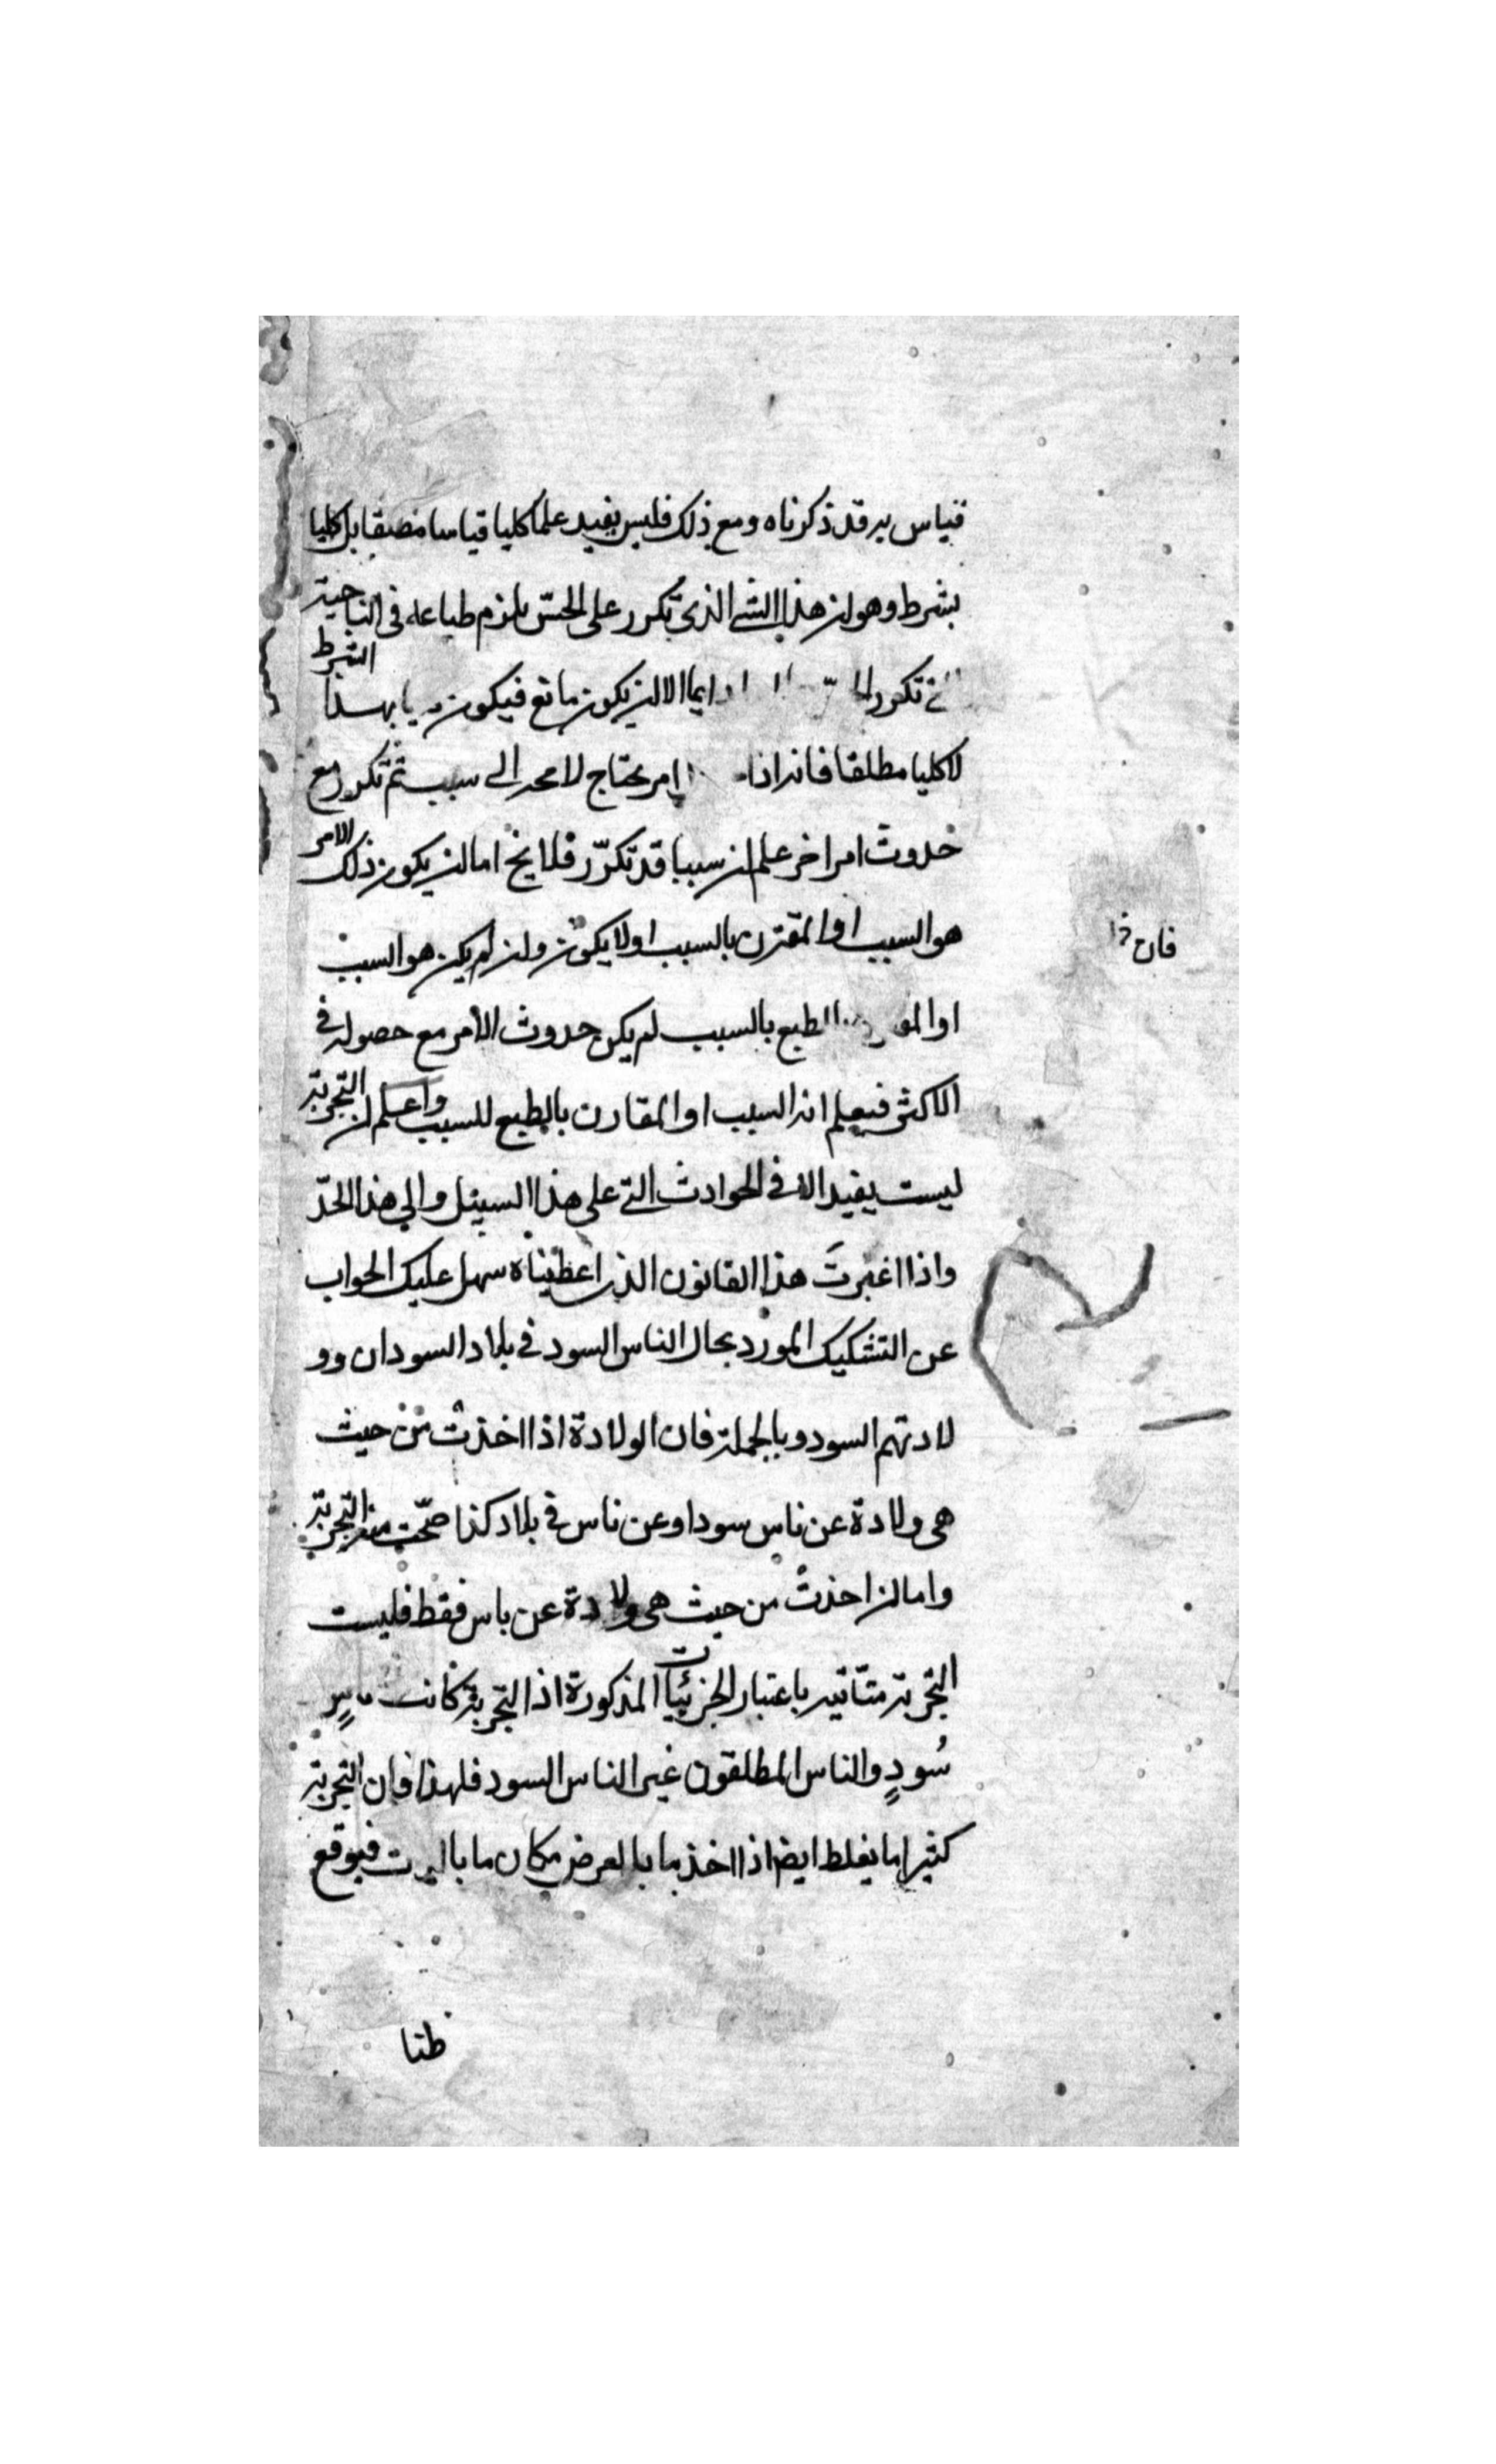 قياس به قد ذكرناه ومع ذلك فليس يفيد علما كليا قياسا مصقا بل كليا
بشرط وهو ان هذا الشى الذى تكرر على الحسّ يلزم طباعه فى الناحية
تكرر دايما الا ان يكون مانع فيكون بهذا الشرط
لا كليا مطلقا فانه اذا امر يحتاج لا محه الى سبب ثم تكرر مع
حدوث امر اخر علم ان سببا قد تكرّر فلا يخ اما ان يكون ذلك الامر
هو السبب او المقترن بالسبب او لا يكون وان لم يكن هو السبب
فان
او بالطبع بالسبب لم يكن حدوث الامر مع حصوله فى
الاكثر فيعلم انه السبب او المقارن بالطبع للسبب واعلم ان التجربة
ليست يفيد الا فى الحوادث التى على هذا السبيل والى هذا الحدّ
واذا اعتبرتَ هذا القانون الذى اعطيناه سهل عليك الجواب
عن التشكيك المورد بحال الناس السود فى بلاد السودان وو
لادتهم السود وبالجملة فان الولادة اذا اخذت من حيث
هى ولادة عن ناس سود او عن ناس فى بلاد كذا صحّت منه التجربة
واما ان اخذتْ من حيث هى ولادة عن ناس فقط فليست
التجربة متاتيه باعتبار الجزئيات المذكورة اذ التجربة كانت
سُودٍ والناس المطلقون غير الناس السود فلهذا فان التجربة
كثيرا ما يغلط ايضا اذا اخذ ما بالعرض مكان ما بالذات فيوقع
ظنا